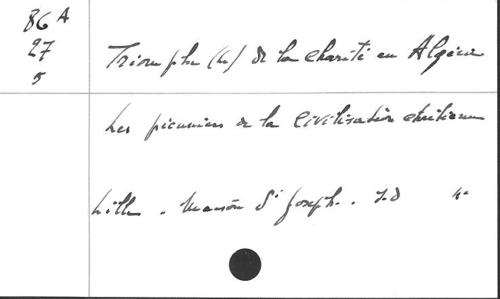 86 A
27
5
Triomphe (le) de la charité en Algérie
Les pionniers de la Civilisation chrétienne
Lille. Maison St Joseph. s.d 4°